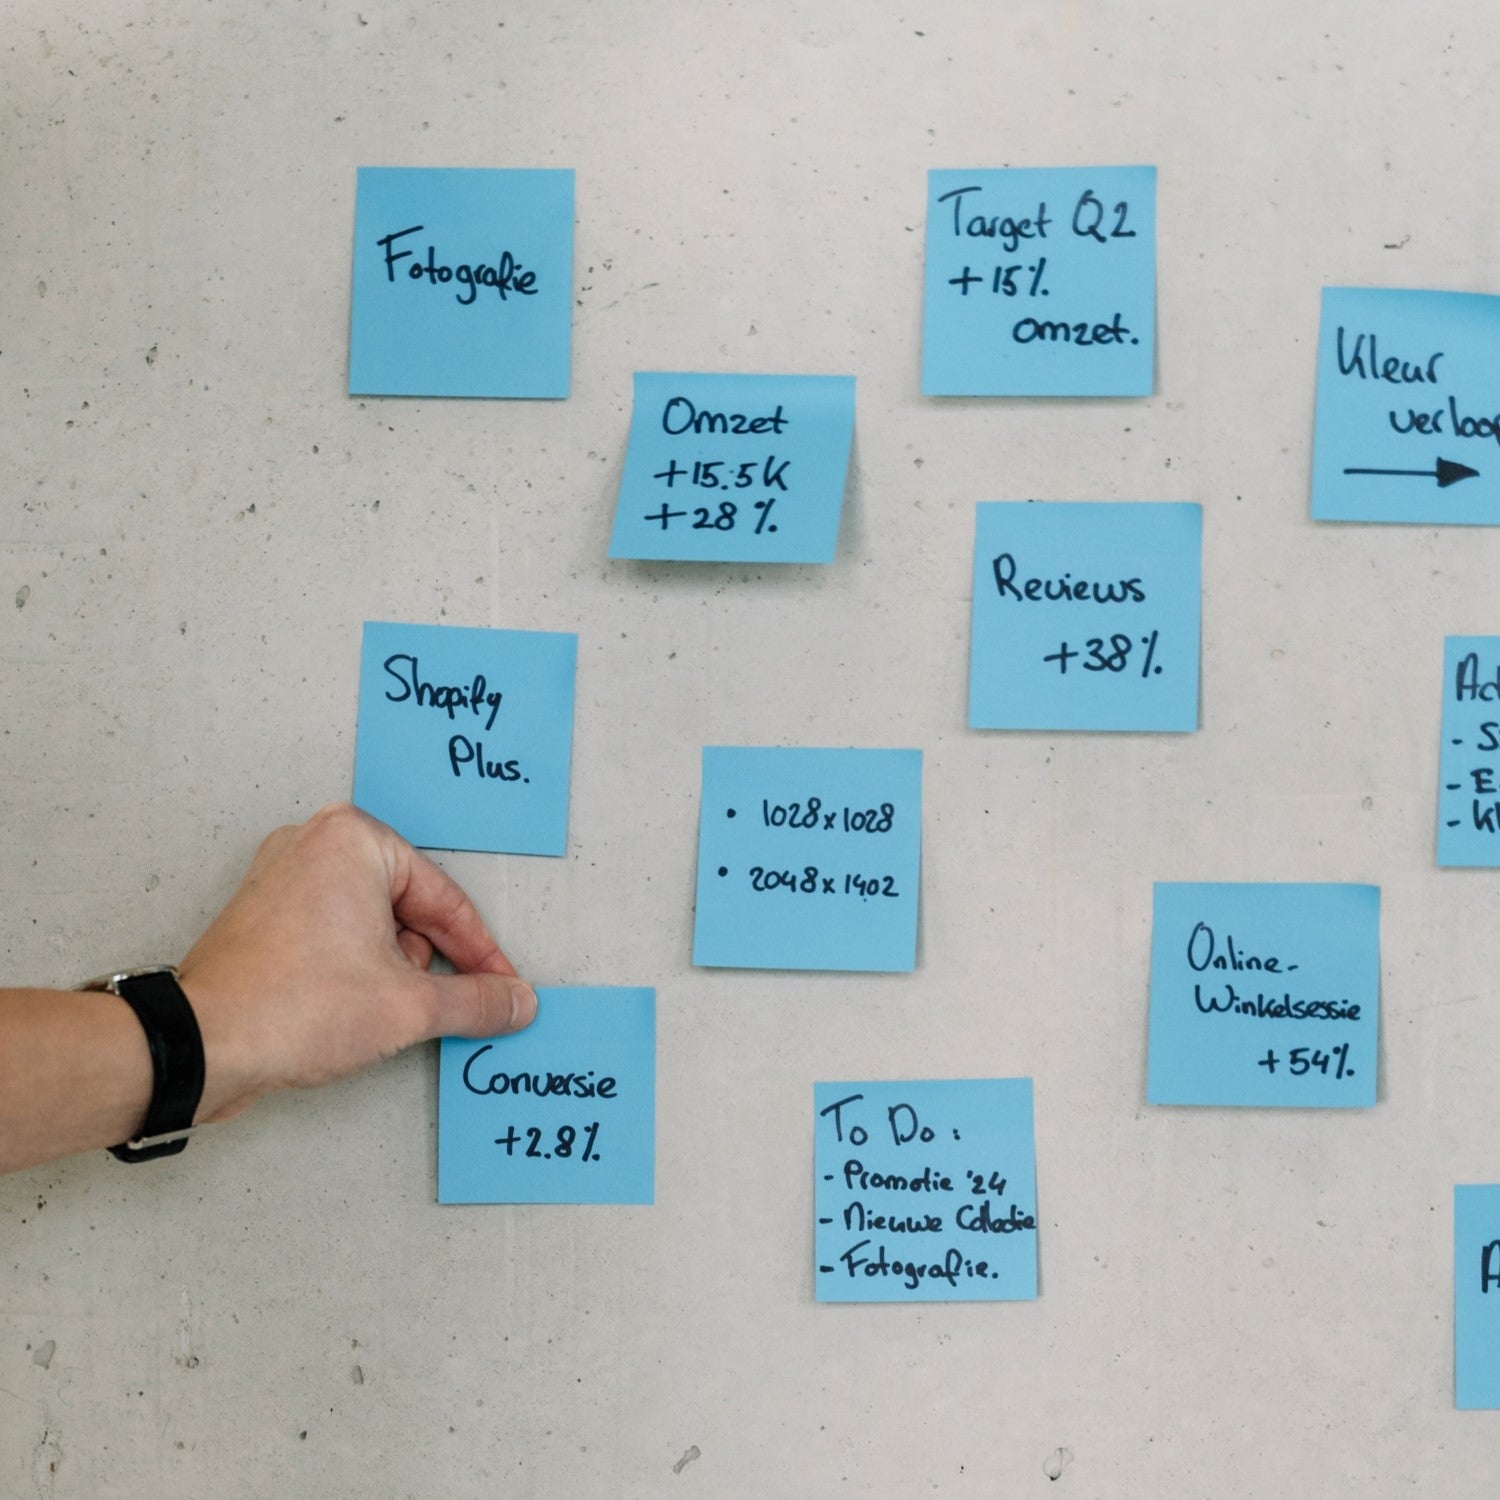 Fotografie
Target Q2
+15%
omzet.
Omzet
+15.5K
+28%
Kleur
Reviews
+38%
Shopify
Plus.
• 1028x1028
• 2048x1402
Online-
Winkelsessie
+54%
Conversie
+2.8%
To Do:
- Promotie '24
- Nieuwe Collectie
- Fotografie.